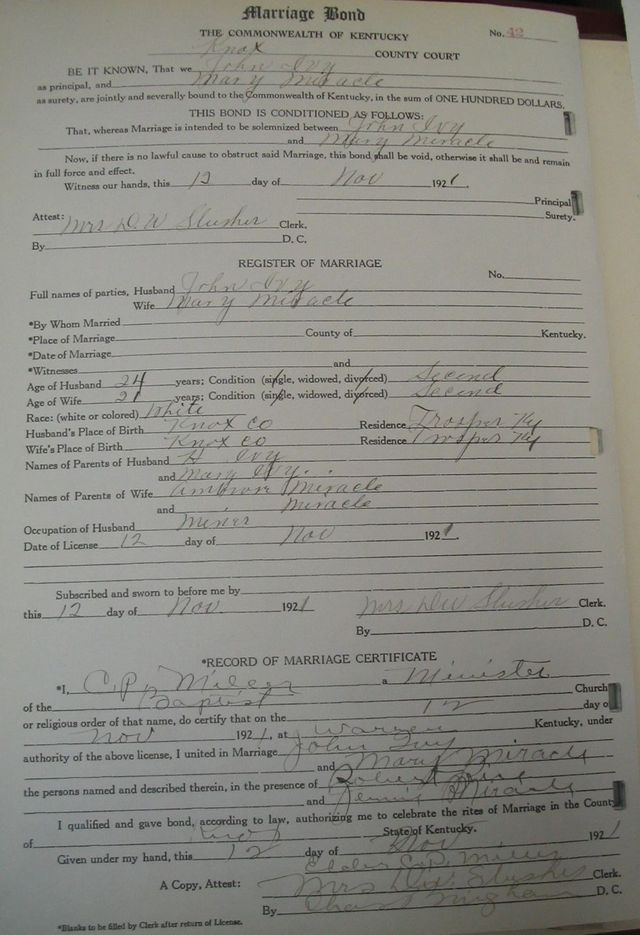 Marriage Bond
THE COMMONWEALTH OF KENTUCKY No. 42
Knox COUNTY COURT
BE IT KNOWN, That we John Ivy
as principal, and Mary Miracle
as surety, are jointly and severally bound to the Commonwealth of Kentucky, in the sum of ONE HUNDRED DOLLARS.
THIS BOND IS CONDITIONED AS FOLLOWS:
That, whereas Marriage is intended to be solemnized between John Ivy
and Mary Miracle
Now, if there is no lawful cause to obstruct said Marriage, this bond shall be void, otherwise it shall be and remain
in full force and effect.
Witness our hands, this 12 day of Nov 1921.
Principal
Surety.
Attest: Mrs D.W Slusher Clerk.
By D. C.
REGISTER OF MARRIAGE
No.
Full names of parties, Husband John Ivy
Wife Mary Miracle
*By Whom Married
*Place of Marriage County of Kentucky.
*Date of Marriage
*Witnesses and
Age of Husband 24 years; Condition (single, widowed, divorced) Second
Age of Wife 21 years; Condition (single, widowed, divorced) Second
Race: (white or colored) White
Husband's Place of Birth Knox Co Residence Trosper Ky
Wife's Place of Birth Knox Co Residence Trosper Ky
Names of Parents of Husband Ivy
and Mary Ivy
Names of Parents of Wife Ambrose Miracle
and Miracle
Occupation of Husband Miner
Date of License 12 day of Nov 1921.
Subscribed and sworn to before me by
this 12 day of Nov 1921 Mrs D.W Slusher Clerk.
By D. C.
*RECORD OF MARRIAGE CERTIFICATE
*I, C.P. Miller a Minister
of the Baptist Church
or religious order of that name, do certify that on the 12 day of
Nov 1921, at Warren Kentucky, under
authority of the above license, I united in Marriage John Ivy
and Mary Miracle
the persons named and described therein, in the presence of Robert
and Miracle
I qualified and gave bond, according to law, authorizing me to celebrate the rites of Marriage in the County
of Knox State of Kentucky.
Given under my hand, this 12 day of Nov 1921
Elder C.P. Miller
A Copy, Attest: Mrs D.W. Slusher Clerk.
By Bingham D. C.
*Blanks to be filled by Clerk after return of License.